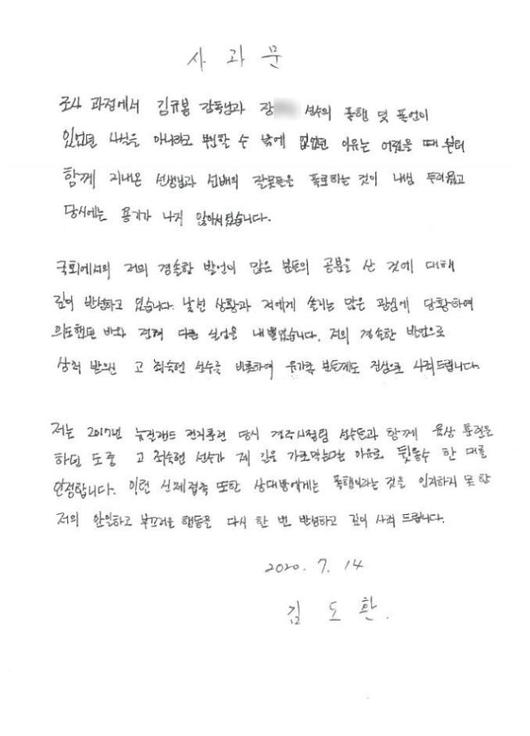 사과문
조사 과정에서 김규봉 감독님과 장 선수의 폭행 및 폭언이
있었던 사실을 아니라고 부인할 수 밖에 없었던 이유는 어렸을 때 부터
함께 지내온 선생님과 선배의 잘못들을 폭로하는 것이 내심 두려웠고
당시에는 용기가 나지 않아서 였습니다.
국회에서의 저의 경솔한 발언이 많은 분들의 공분을 산 것에 대해
깊이 반성하고 있습니다. 낯선 상황과 저에게 쏠리는 많은 관심에 당황하여
의도했던 바와 전혀 다른 실언을 내뱉었습니다. 저의 경솔한 발언으로
상처 받으신 고 최숙현 선수를 비롯하여 유가족 분들께도 진심으로 사죄드립니다.
저는 2017년 뉴질랜드 전지훈련 당시 경주시청팀 선수들과 함께 육상 훈련을
하던 도중 고 최숙현 선수가 제 길을 가로막는다는 이유로 뒷통수 한 대를
인정합니다. 이런 신체접촉 또한 상대방에게는 폭행이라는 것을 인지하지 못한
저의 안일하고 부끄러운 행동을 다시 한 번 반성하고 깊이 사죄 드립니다.
2020. 7. 14
김도환.